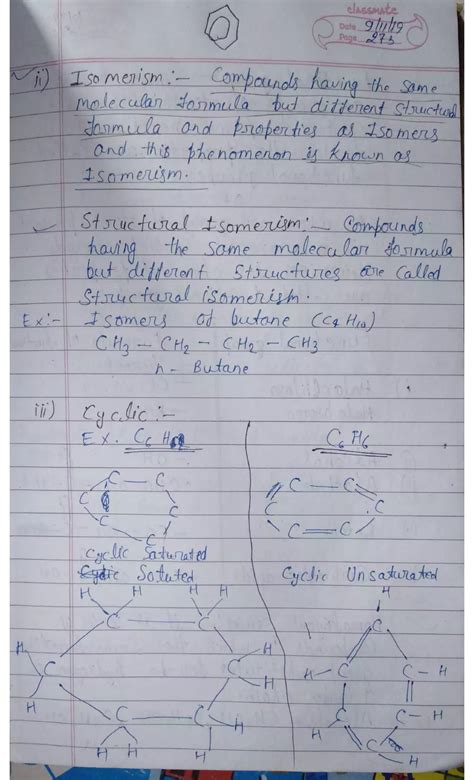 classmate
Date 9/11/19
Page 273
ii) Isomerism:- Compounds having the same
molecular formula but different structural
formula and properties as Isomers
and this phenomenon is known as
Isomerism.
Structural Isomerism:- Compounds
having the same molecular formula
but different structures are called
structural isomerism.
Ex:- Isomers of butane (C4 H10)
CH3 - CH2 - CH2 - CH3
n - Butane
iii) Cyclic:-
Ex. C6 H12
C6 H6
C - C
C - C
C C
C C
C - C
C = C
Cyclic Saturated
Cyclic Unsaturated
H H H H
H
C - C
C
H C C H
H - C C - H
H H
H C - C H
C C - H
H H H
H C H